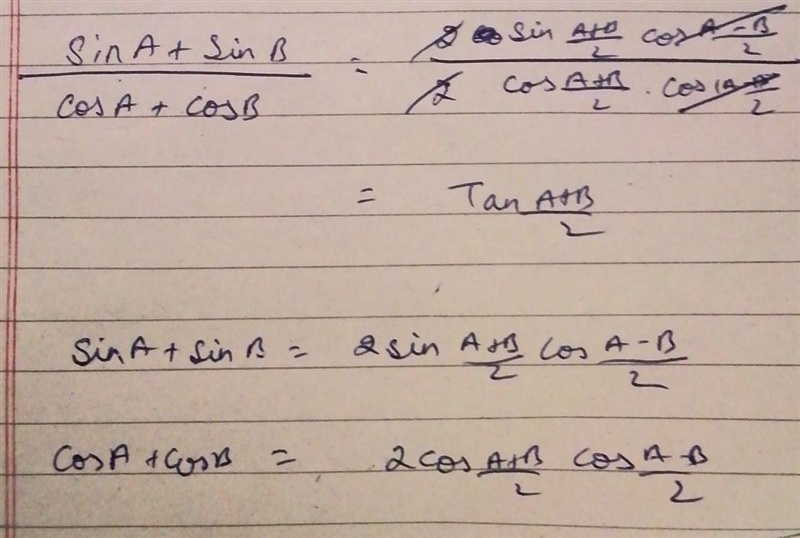 SinA + SinB / CosA + CosB = 2 Sin A+B/2 Cos A-B/2 / 2 Cos A+B/2 . Cos A-B/2
= Tan A+B/2
SinA + SinB = 2 Sin A+B/2 Cos A-B/2
CosA + CosB = 2 Cos A+B/2 Cos A-B/2